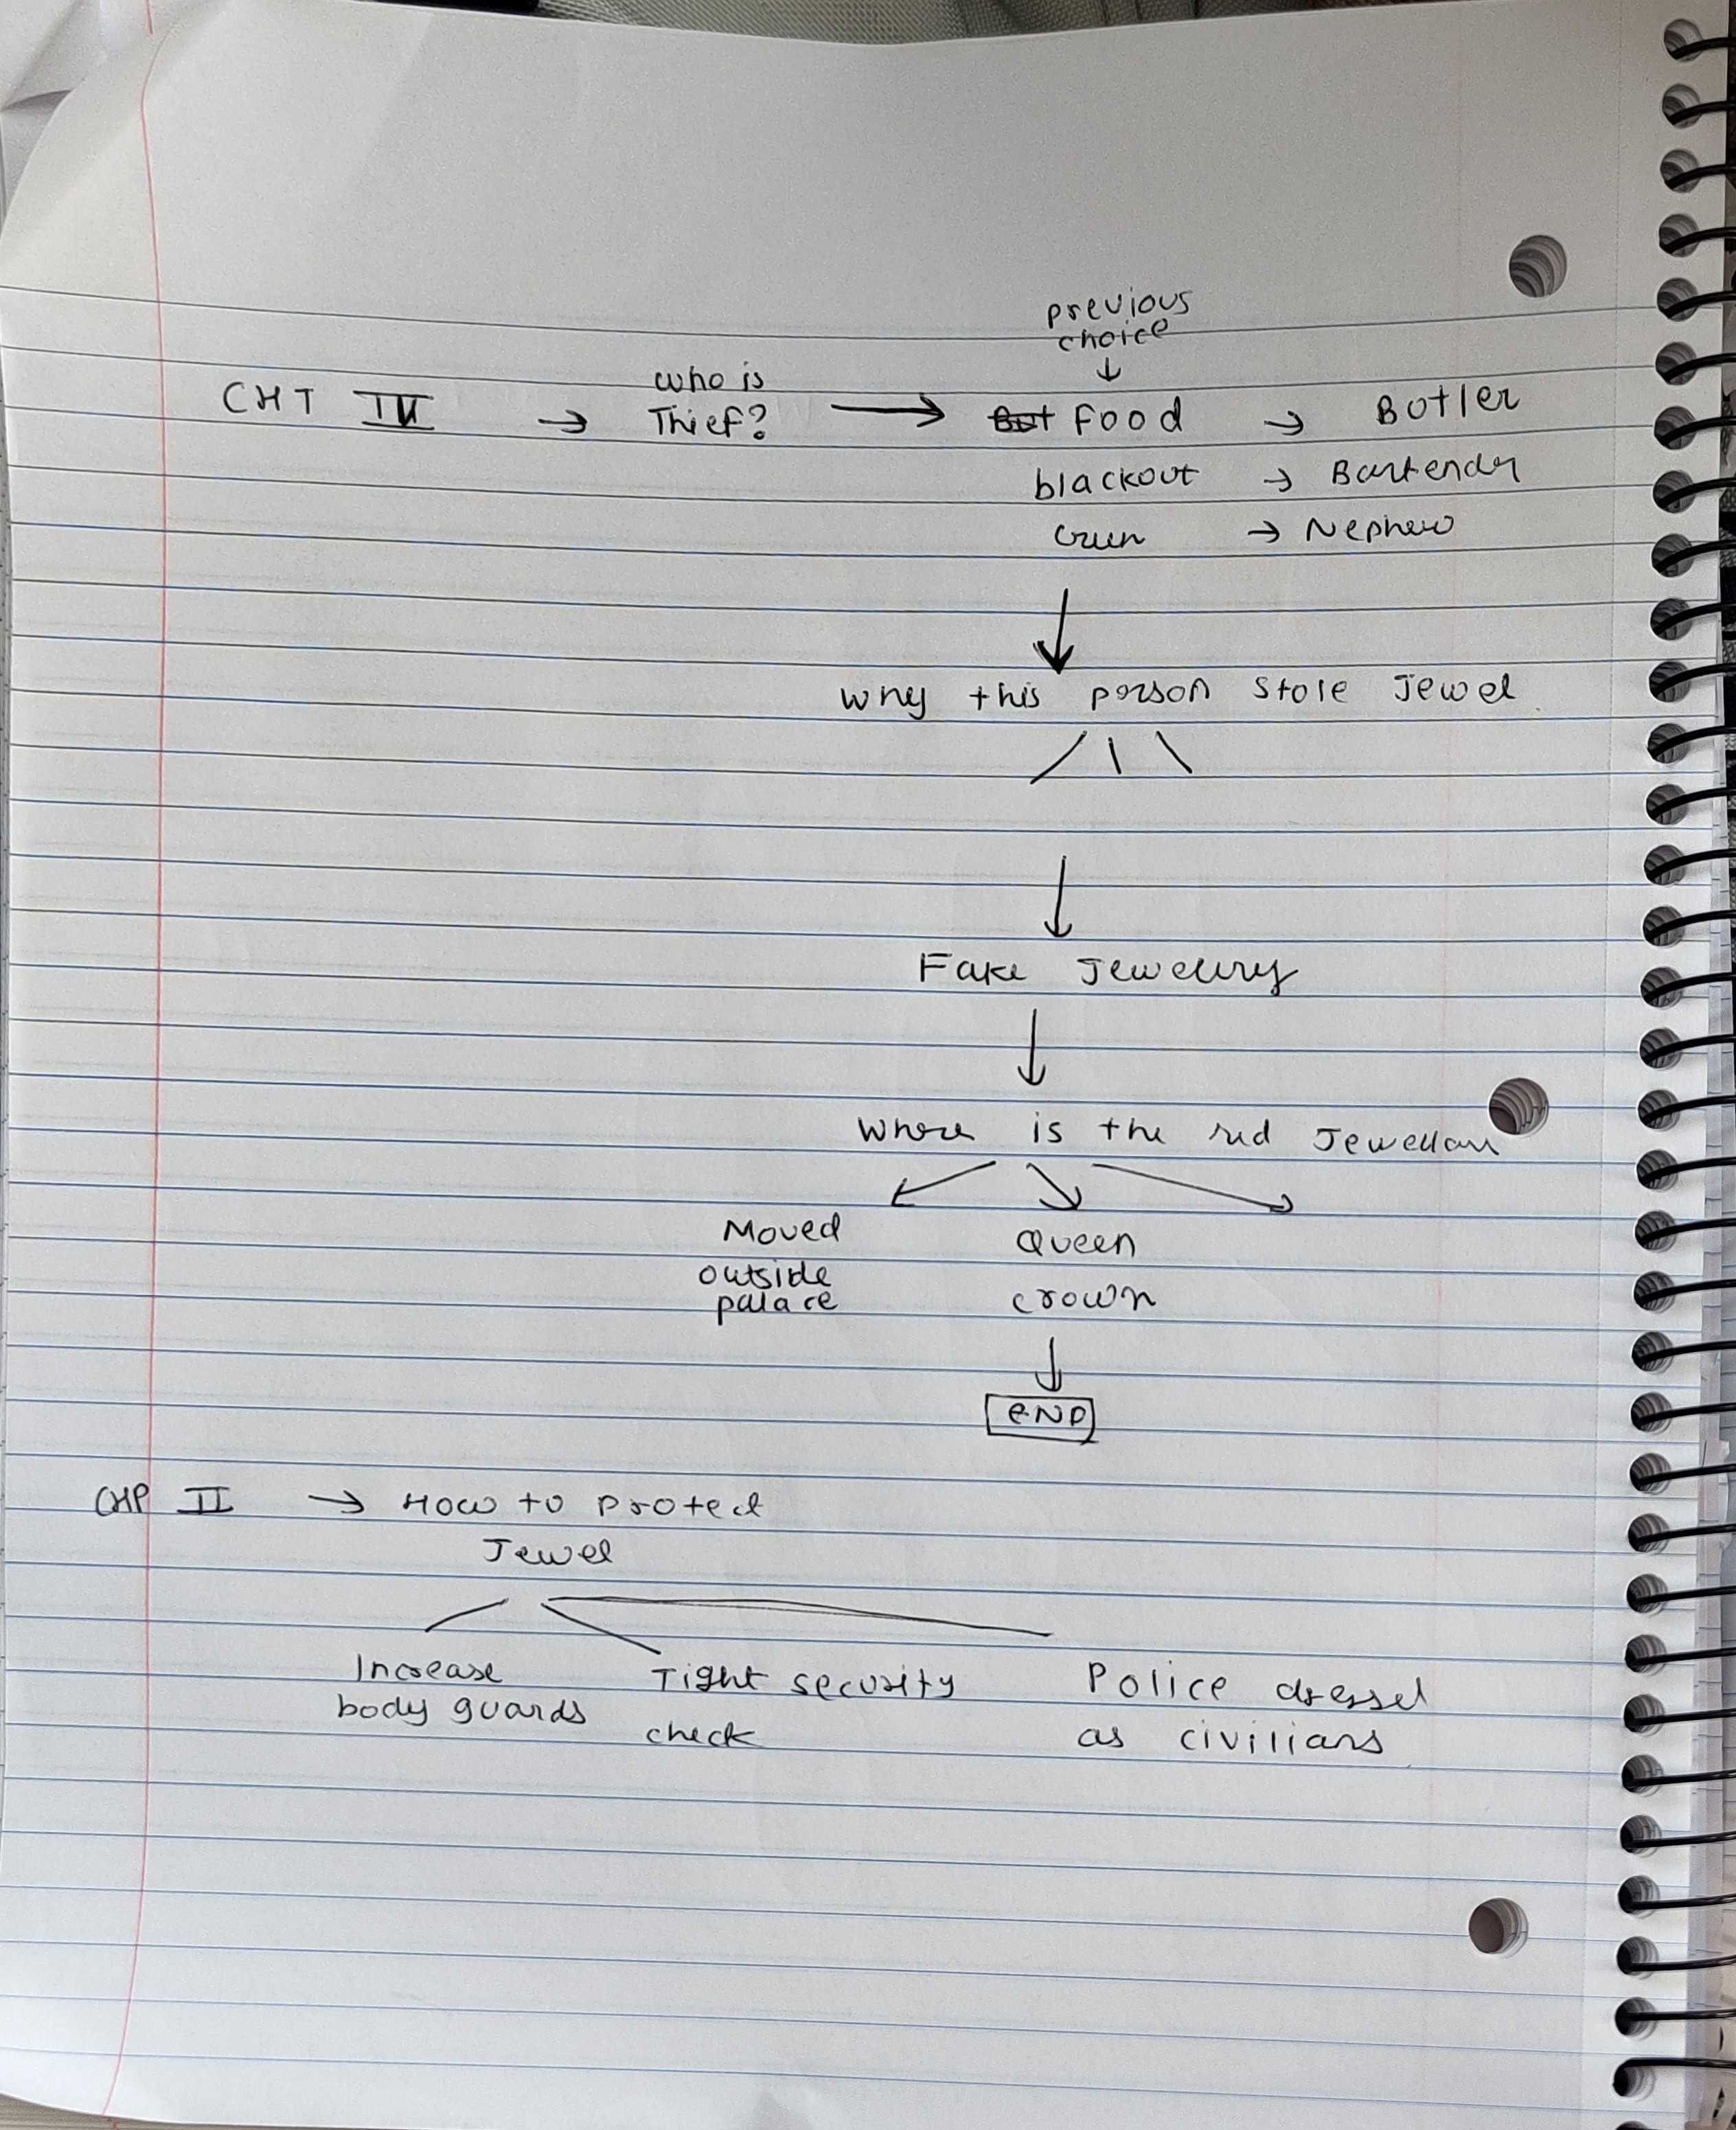 previous
choice
↓
CHT IV → who is Thief? → Food → Butler
blackout → Bartender
Gun → Nephew
↓
Why this person stole Jewel
↓
Fake Jewellery
↓
Where is the red Jewellary
Moved outside palace
Queen crown
↓
END
CHP II → How to Protect
Jewel
Increase body guards
Tight security check
Police dressed as civilians